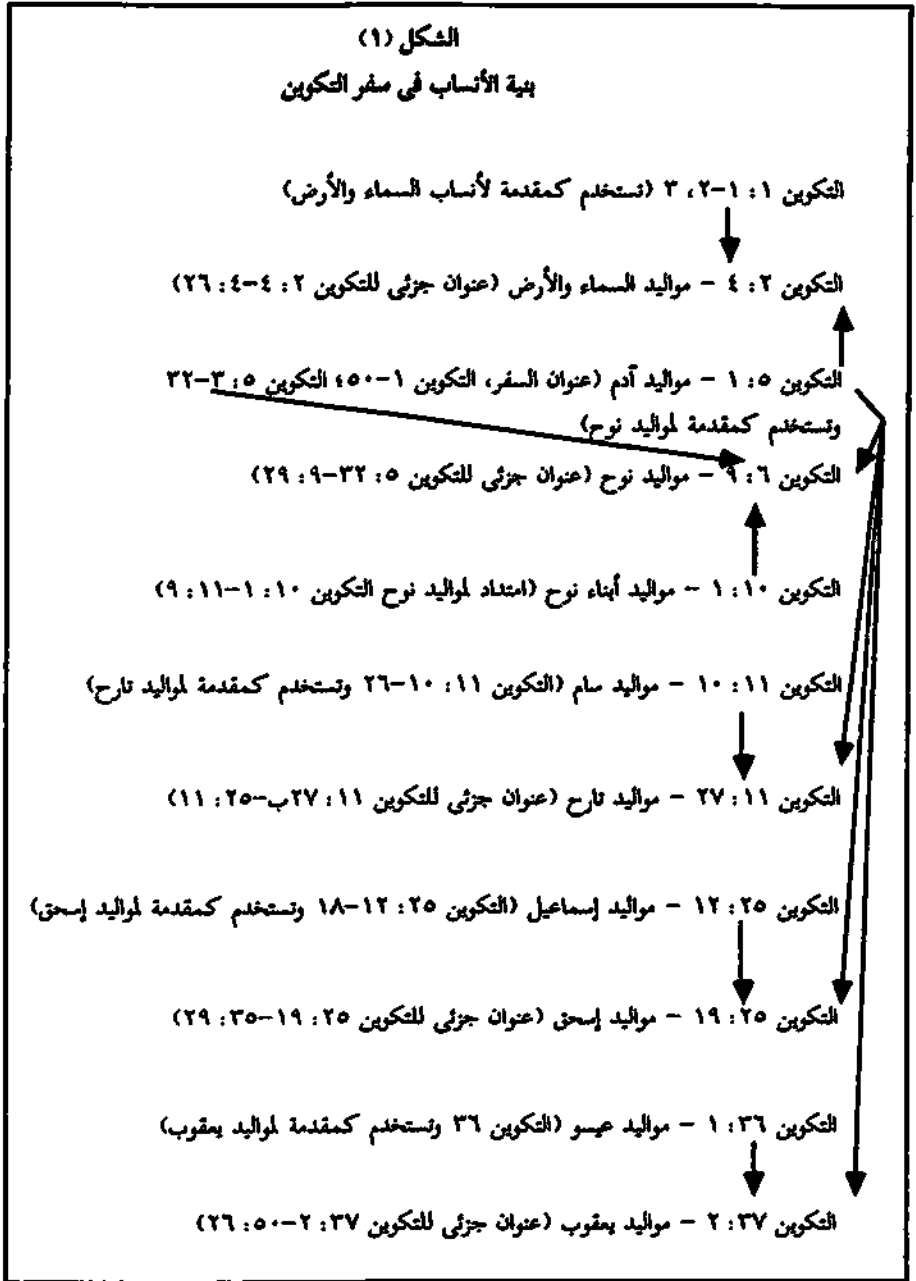 الشكل (١)
بنية الأنساب في سفر التكوين
التكوين ١ : ١-٢، ٣ (تستخدم كمقدمة لأنساب السماء والأرض)
التكوين ٢ : ٤ - مواليد السماء والأرض (عنوان جزئى للتكوين ٢ : ٤-٤ : ٢٦)
التكوين ٥ : ١ - مواليد آدم (عنوان السفر، التكوين ١-٥٠؛ التكوين ٥ : ٣-٣٢
وتستخدم كمقدمة لمواليد نوح)
التكوين ٦ : ٩ - مواليد نوح (عنوان جزئى للتكوين ٥ : ٣٢-٩ : ٢٩)
التكوين ١٠ : ١ - مواليد أبناء نوح (امتداد لمواليد نوح التكوين ١٠ : ١-١١ : ٩)
التكوين ١١ : ١٠ - مواليد سام (التكوين ١١ : ١٠-٢٦ وتستخدم كمقدمة لمواليد تارح)
التكوين ١١ : ٢٧ - مواليد تارح (عنوان جزئى للتكوين ١١ : ٢٧ب-٢٥ : ١١)
التكوين ٢٥ : ١٢ - مواليد إسماعيل (التكوين ٢٥ : ١٢-١٨ وتستخدم كمقدمة لمواليد إسحق)
التكوين ٢٥ : ١٩ - مواليد إسحق (عنوان جزئى للتكوين ٢٥ : ١٩-٣٥ : ٢٩)
التكوين ٣٦ : ١ - مواليد عيسو (التكوين ٣٦ وتستخدم كمقدمة لمواليد يعقوب)
التكوين ٣٧ : ٢ - مواليد يعقوب (عنوان جزئى للتكوين ٣٧ : ٢-٥٠ : ٢٦)